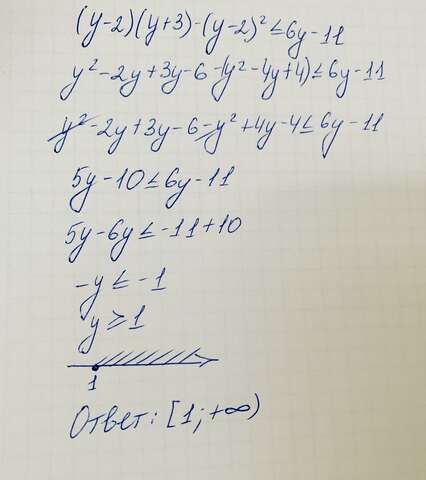 (y-2)(y+3)-(y-2)²≤6y-11
y²-2y+3y-6-(y²-4y+4)≤6y-11
y²-2y+3y-6-y²+4y-4≤6y-11
5y-10≤6y-11
5y-6y≤-11+10
-y≤-1
y≥1
1
Ответ: [1;+∞)